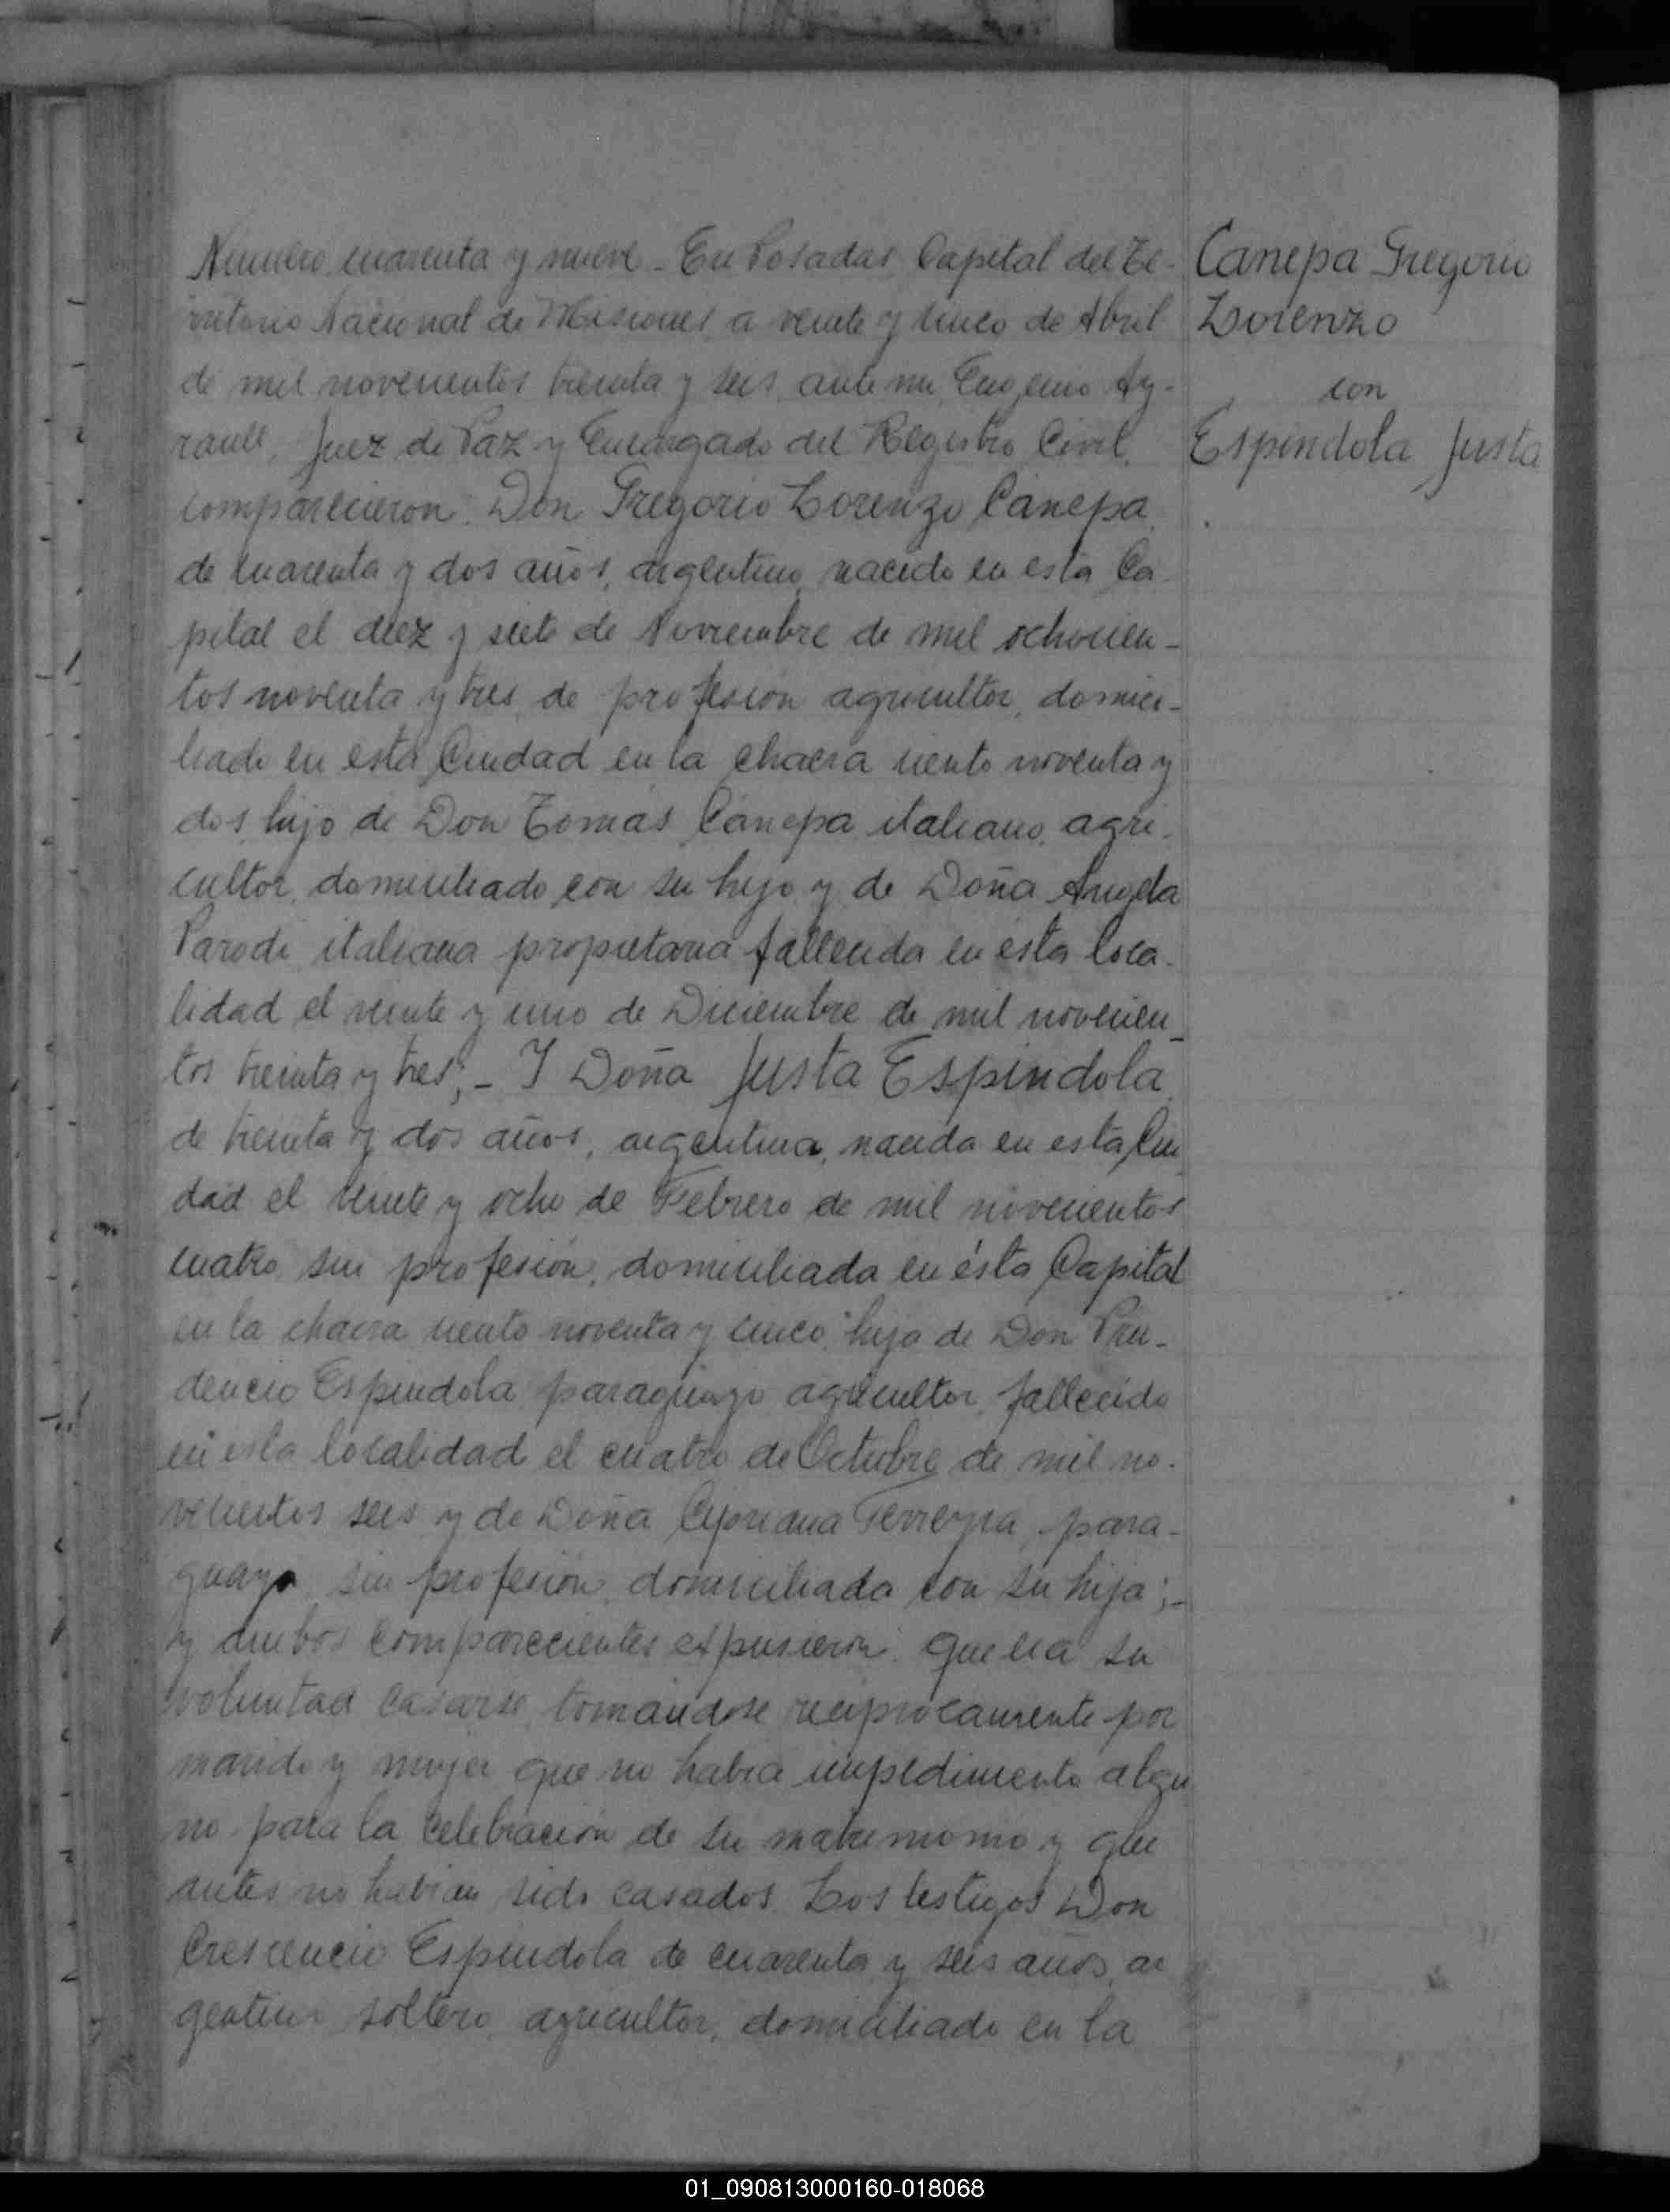 Numero cuarenta y nueve - En Posadas Capital del Te-
rritorio Nacional de Misiones, a veinte y cinco de Abril
de mil novecientos treinta y seis, ante mi, Eugenio Ay-
rault, Juez de Paz y Encargado del Registro Civil,
comparecieron: Don Gregorio Lorenzo Cánepa,
de cuarenta y dos años, argentino, nacido en esta Ca-
pital el diez y siete de Noviembre de mil ochocien-
tos noventa y tres, de profesión agricultor, domici-
liado en esta Ciudad en la chacra ciento noventa y
dos, hijo de Don Tomás Cánepa, italiano, agri-
cultor, domiciliado con su hijo y de Doña Angela
Parodi, italiana, propietaria, fallecida en ésta loca-
lidad el veinte y uno de Diciembre de mil novecien-
tos treinta y tres; - Y Doña Justa Espindola,
de treinta y dos años, argentina, nacida en esta Ciu
dad el veinte y ocho de Febrero de mil novecientos
cuatro, sin profesión, domiciliada en ésta Capital
en la chacra ciento noventa y cinco, hija de Don Pru-
dencio Espindola, paraguayo, agricultor, fallecido
en esta localidad el cuatro de Octubre de mil no-
vecientos seis y de Doña Cipriana Ferreyra, para-
guaya, sin profesión, domiciliada con su hija; -
y ambos comparecientes expusieron: que era su
voluntad casarse, tomándose recíprocamente por
marido y mujer que no había impedimento algu
no para la celebración de su matrimonio y que
antes no habían sido casados. Los testigos Don
Crescencio Espindola de cuarenta y seis años, ar
gentino, soltero, agricultor, domiciliado en la
Canepa Gregorio
Lorenzo
con
Espindola Justa
01_090813000160-018068